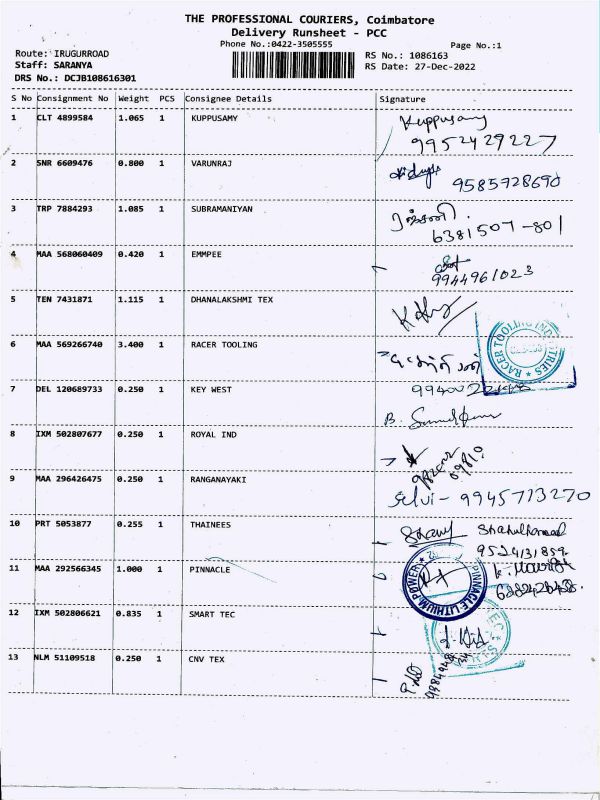 THE PROFESSIONAL COURIERS, Coimbatore
Delivery Runsheet - PCC
Phone No.:0422-3505555
Page No.:1
Route: IRUGURROAD
RS No.: 1086163
Staff: SARANYA
RS Date: 27-Dec-2022
DRS No.: DCJB108616301
S No Consignment No Weight PCS Consignee Details Signature
1 CLT 4899584 1.065 1 KUPPUSAMY Kuppusamy
9952429227
2 SNR 6609476 0.800 1 VARUNRAJ
9585728690
3 TRP 7884293 1.085 1 SUBRAMANIYAN ரஞ்சனி.
6381507-801
4 MAA 568060409 0.420 1 EMMPEE
9944961023
5 TEN 7431871 1.115 1 DHANALAKSHMI TEX
6 MAA 569266740 3.400 1 RACER TOOLING
RACER TOOLING INDUSTRIES
7 DEL 120689733 0.250 1 KEY WEST
8 IXM 502807677 0.250 1 ROYAL IND
9 MAA 296426475 0.250 1 RANGANAYAKI
Selvi - 9945713270
10 PRT 5053877 0.255 1 THAINEES
9524131859
11 MAA 292566345 1.000 1 PINNACLE
PINNACLE LITHIUM POWER
12 IXM 502806621 0.835 1 SMART TEC
13 NLM 51109518 0.250 1 CNV TEX